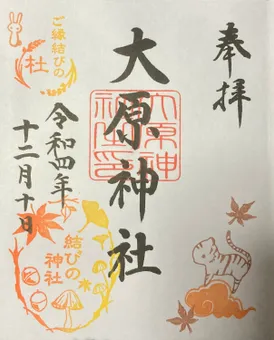 奉拝
大原神社
令和四年
十二月十日
ご縁結びの
杜
結びの
神社